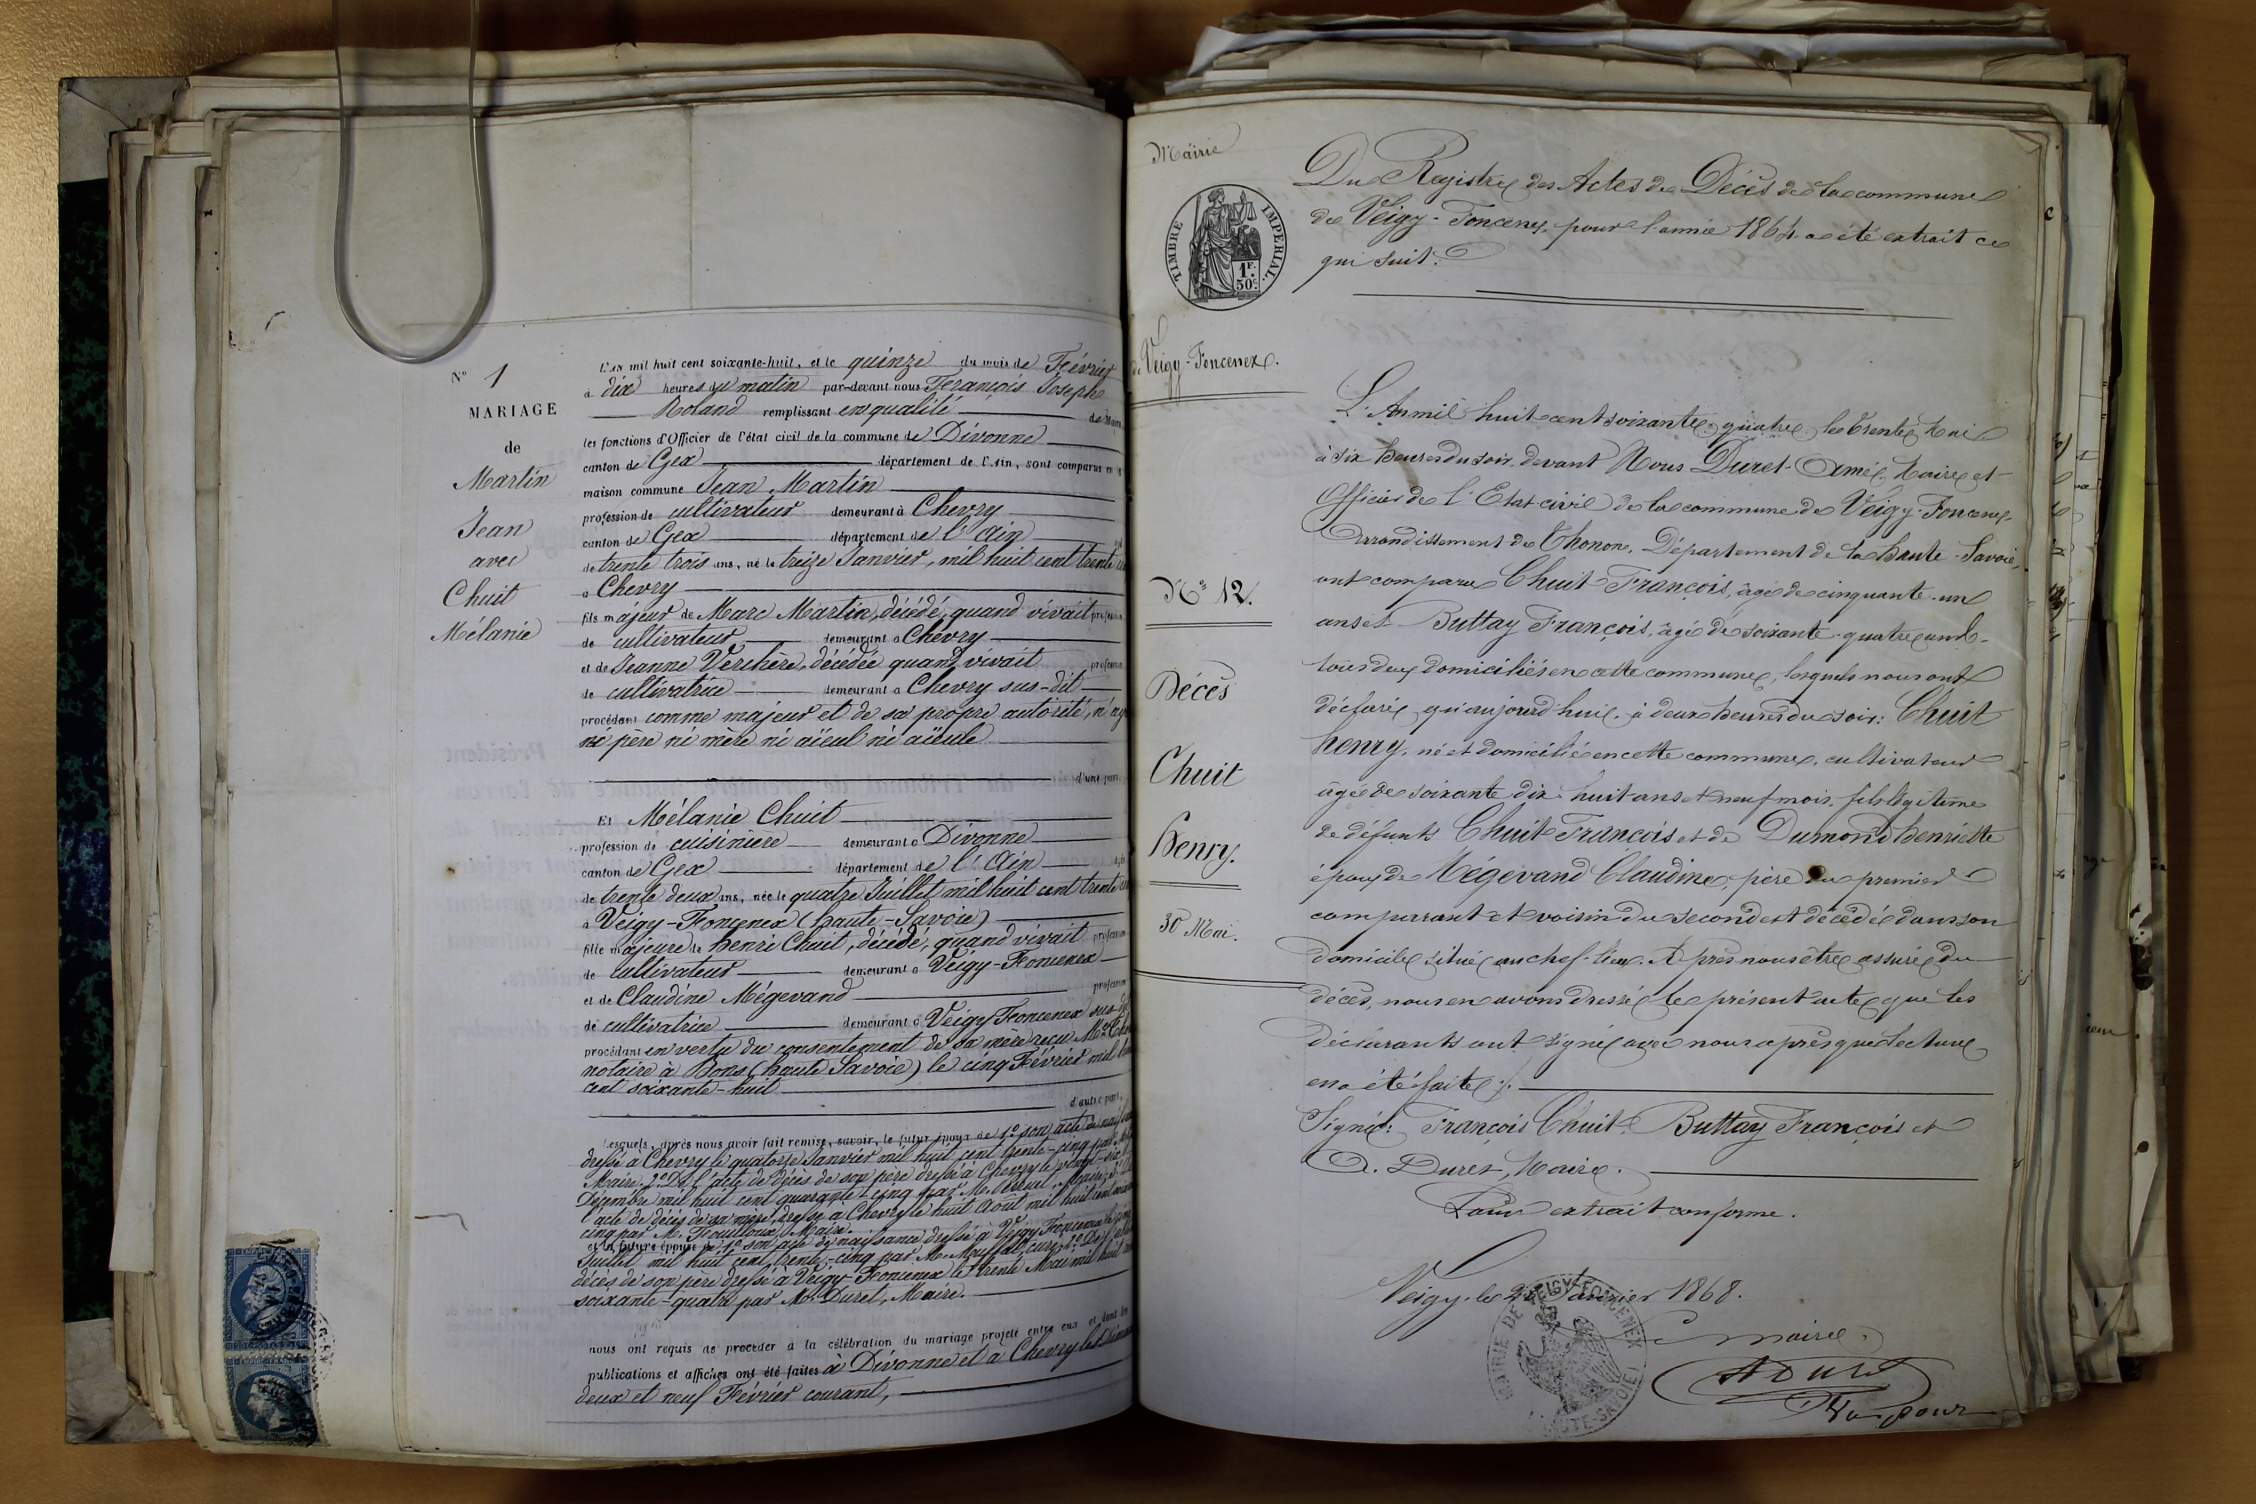 N° 1
MARIAGE
de
Martin
Jean
avec
Chuit
Mélanie
L'An mil huit cent soixante-huit, et le quinze du mois de Février
à dix heures du matin par-devant nous François Joseph
Roland remplissant en qualité de Maire
les fonctions d'Officier de l'état civil de la commune de Divonne
canton de Gex département de l'Ain, sont comparus en
maison commune Jean Martin
profession de cultivateur demeurant à Chevry
canton de Gex département de l'Ain
de trente trois ans, né le treize Janvier, mil huit cent trente
à Chevry
fils majeur de Marc Martin, décédé, quand vivait profession
de cultivateur demeurant à Chevry
et de Jeanne Verchère, décédée quand vivait profession
de cultivatrice demeurant à Chevry sus-dit
procédant comme majeur et de sa propre autorité, n'ay
ni père ni mère ni aïeul ni aïeule
d'une part
Et Mélanie Chuit
profession de cuisinière demeurant à Divonne
canton de Gex département de l'Ain
de trente deux ans, née le quatre Juillet mil huit cent trente
à Veigy-Foncenex (haute-Savoie)
fille majeure de henri Chuit, décédé, quand vivait profession
de cultivateur demeurant à Veigy-Foncenex
et de Claudine Mégevand profession
de cultivatrice demeurant à Veigy Foncenex sus-d
procédant en vertu du consentement de sa mère reçu Me
notaire à Bons (haute Savoie) le cinq Février mil
cent soixante-huit
d'autre part,
Lesquels, après nous avoir fait remise, savoir, le futur époux de 1° son acte de
dressé à Chevry le quatorze Janvier mil huit cent trente-cinq par
Maire. 2° De l'acte de décès de son père dressé à Chevry le vingt-six
Décembre mil huit cent quarante cinq par M.
l'acte de décès de sa mère, dressé à Chevry le huit Août mil huit cent
cinq par M. Trouilloux, Maire.
et la future épouse de 1° son acte de naissance dressé à Veigy Foncenex le
Juillet mil huit cent trente-cinq par M. curé, 2° De l'
décès de son père dressé à Veigy-Foncenex le trente Mai mil huit
soixante-quatre par M. Duret, Maire.
nous ont requis de procéder à la célébration du mariage projeté entre eux et dont les
publications et affiches ont été faites à Divonne et à Chevry les
deux et neuf Février courant,
Mairie
TIMBRE IMPERIAL.
1F. 50c
de Veigy-Foncenex.
N° 12.
Décès
Chuit
Henry.
30 Mai.
Du Registre des Actes de Décès de la commune
de Veigy-Foncenex, pour l'année 1864 a été extrait ce
qui suit:
L'An mil huit cent soixante quatre, le trente Mai
à six heures du soir, devant Nous Duret Amé, Maire et
Officier de l'Etat civil de la commune de Veigy-Foncenex,
Arrondissement de Thonon, Département de la Haute-Savoie,
ont comparu Chuit François, âgé de cinquante-un
ans et Buttay François, âgé de soixante-quatre ans
tous deux domiciliés en cette commune, lesquels nous ont
déclaré qu'aujourd'hui, à deux heures du soir: Chuit
henry, né et domicilié en cette commune, cultivateur
âgé de soixante dix-huit ans et neuf mois, fils légitime
de défunts Chuit François et de Dumond henriette
époux de Mégevand Claudine, père du premier
comparant et voisin du second est décédé dans son
domicile situé au chef-lieu. Après nous être assuré du
décès, nous en avons dressé le présent acte que les
déclarants ont signé avec nous après que lecture
en a été faite.
Signé: François Chuit. Buttay François et
A. Duret, Maire.
Pour extrait conforme.
Veigy, le Janvier 1868.
Le maire.
A Duret
MAIRIE DE VEIGY-FONCENEX
HAUTE-SAVOIE